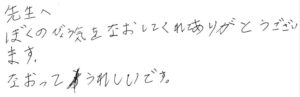 先生へ
ぼくのびょう気をなおしてくれありがとうござい
ます。
なおってうれしいです。